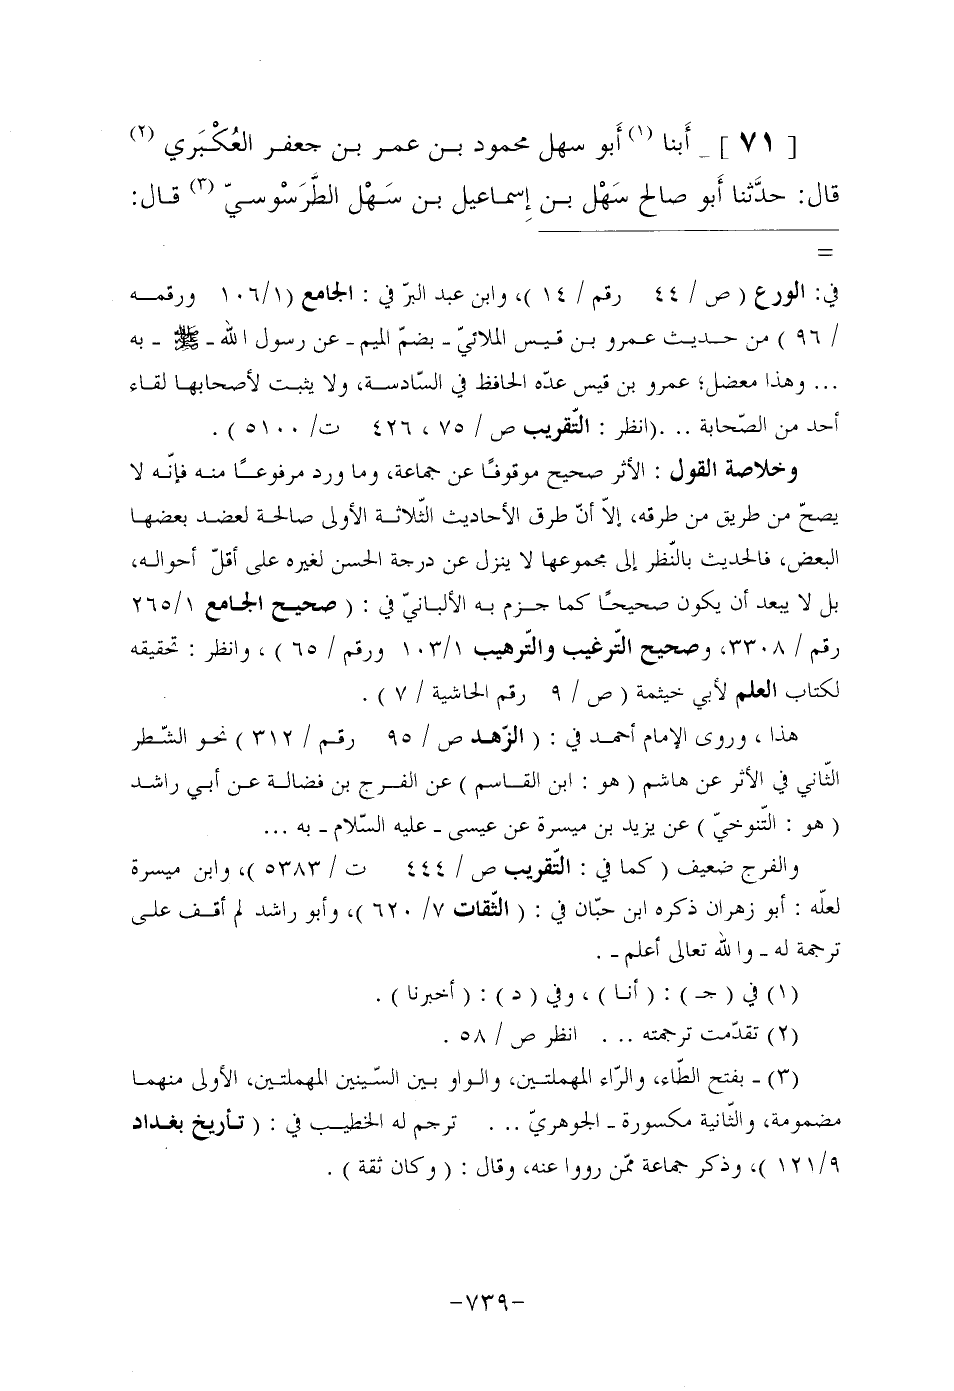 [ ٧١ ] _ أَبنا (١) أَبو سهل محمود بـن عمـر بـن جعفـر العُكْبَري (٢)
قال: حدَّثنا أَبو صالح سَهْل بـن إسماعيل بـن سَـهْل الطَّرَسُوْسيّ (٣) قال:
=
في: الورع ( ص/ ٤٤ رقم/ ١٤ )، وابن عبد البرّ في : الجامع (١/ ١٠٦ ورقمـه
/ ٩٦ ) من حـديـث عمـرو بـن قيـس الملائيّ ـ بضمّ الميم ـ عن رسول الله ـ ﷺ ـ به
... وهذا معضل؛ عمرو بن قيس عدّه الحافظ في السّادسـة، ولا يثبت لأصحابهـا لقاء
أحد من الصّحابة .. .(انظر : التّقريب ص/ ٧٥ ، ٤٢٦ ت/ ٥١٠٠ ) .
وخلاصة القول : الأثر صحيح موقوفًا عن جماعة، وما ورد مرفوعًـا منـه فإنّـه لا
يصحّ من طريق من طرقه، إلاّ أنّ طرق الأحاديث الثّلاثـة الأولى صالحـة لعضـد بعضهـا
البعض، فالحديث بالنّظر إلى مجموعها لا ينزل عن درجة الحسن لغيره على أقلّ أحوالـه،
بل لا يبعد أن يكون صحيحًا كما جـزم بـه الألبـانيّ في : ( صحيـح الجـامع ١/ ٢٦٥
رقم/ ٣٣٠٨، وصحيح التّرغيب والتّرهيب ١/ ١٠٣ ورقم/ ٦٥ ) ، وانظر : تحقيقه
لكتاب العلم لأبي خيثمة ( ص/ ٩ رقم الحاشية/ ٧ ) .
هذا ، وروى الإمام أحمـد في : ( الزّهـد ص/ ٩٥ رقـم/ ٣١٢ ) نحـو الشّـطر
الثّاني في الأثر عن هاشم ( هو : ابن القـاسم ) عن الفـرج بن فضالـة عـن أبـي راشـد
( هو : التّنوخيّ ) عن يزيد بن ميسرة عن عيسى ـ عليه السّلام ـ به ...
والفرج ضعيف ( كما في : التّقريب ص/ ٤٤٤ ت/ ٥٣٨٣ )، وابن ميسرة
لعلّه : أبو زهران ذكره ابن حبّان في : ( الثّقات ٧/ ٦٢٠ )، وأبو راشد لم أقـف علـى
ترجمة له ـ والله تعالى أعلم ـ .
(١) في ( جـ ) : ( أنـا ) ، وفي ( د ) : ( أخبرنا ) .
(٢) تقدّمت ترجمته .. . انظر ص/ ٥٨ .
(٣) ـ بفتح الطّاء، والرّاء المهملتين، والواو بين السّينين المهملتين، الأولى منهمـا
مضمومة، والثّانية مكسورة ـ الجوهريّ .. . ترجم له الخطيـب في : ( تـأريخ بغـداد
٩/ ١٢١ )، وذكر جماعة ممّن رووا عنه، وقال : ( وكان ثقة ) .
-٧٣٩-